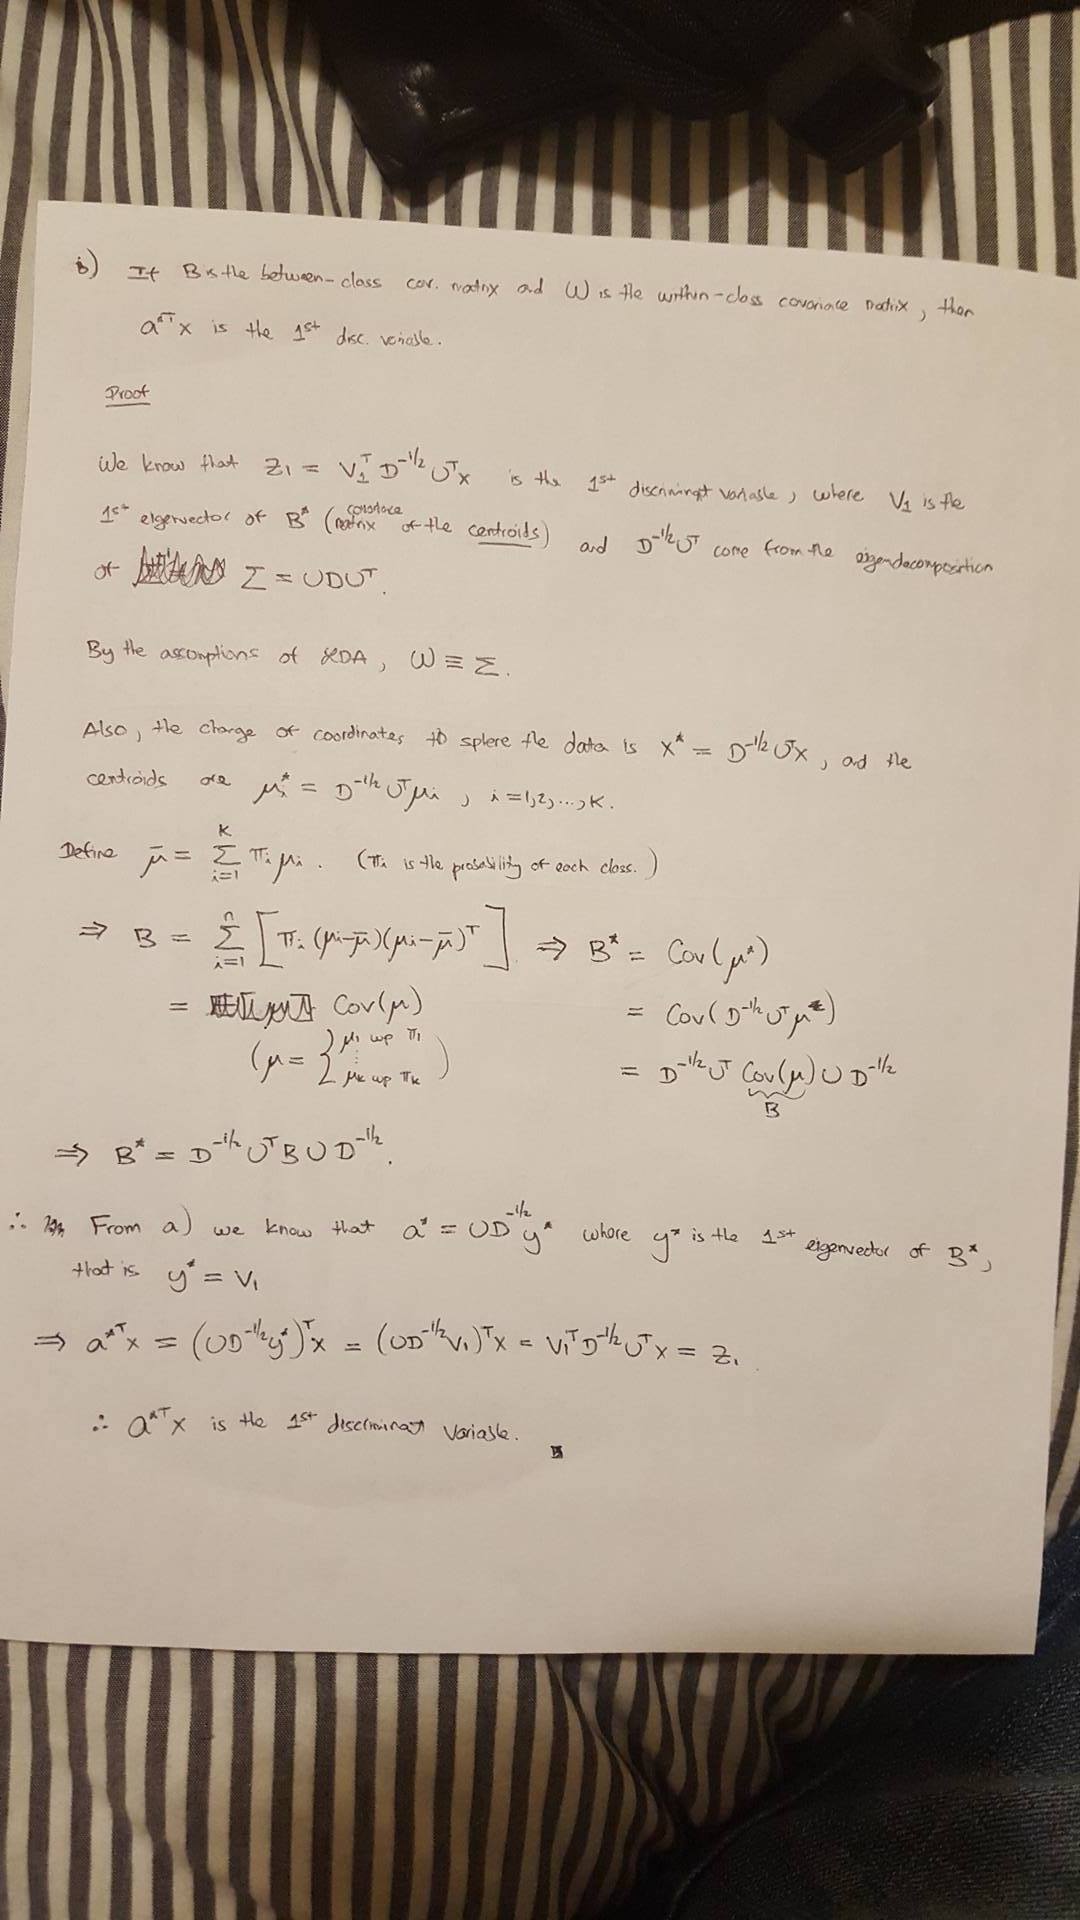 b) If B is the between-class cov. matrix and W is the within-class covariance matrix, then
a*ᵀx is the 1st disc. variable.
Proof
We know that Z₁ = V₁ᵀ D^(-1/2) Uᵀx is the 1st discriminant variable, where V₁ is the
1st eigenvector of B* (covariance matrix of the centroids) and D^(-1/2) Uᵀ come from the eigendecomposition
of Σ = UDUᵀ.
By the assumptions of LDA, W ≡ Σ.
Also, the change of coordinates to sphere the data is x* = D^(-1/2) Uᵀx, and the
centroids are μᵢ* = D^(-1/2) Uᵀμᵢ, i=1,2,...,K.
Define μ̄ = Σ_{i=1}^{K} πᵢ μᵢ. (πᵢ is the probability of each class.)
⇒ B = Σ_{i=1}^{n} [πᵢ (μᵢ-μ̄)(μᵢ-μ̄)ᵀ] ⇒ B* = Cov(μ*)
= Cov(μ) = Cov(D^(-1/2) Uᵀμ)
(μ = { μ₁ wp π₁ ⋮ μₖ wp πₖ ) = D^(-1/2) Uᵀ Cov(μ) U D^(-1/2)
B
⇒ B* = D^(-1/2) UᵀB U D^(-1/2).
∴ From a) we know that a* = UD^(-1/2) y* where y* is the 1st eigenvector of B*,
that is y* = V₁
⇒ a*ᵀx = (UD^(-1/2) y*)ᵀx = (UD^(-1/2) V₁)ᵀx = V₁ᵀD^(-1/2) Uᵀx = Z₁
∴ a*ᵀx is the 1st discriminant variable.